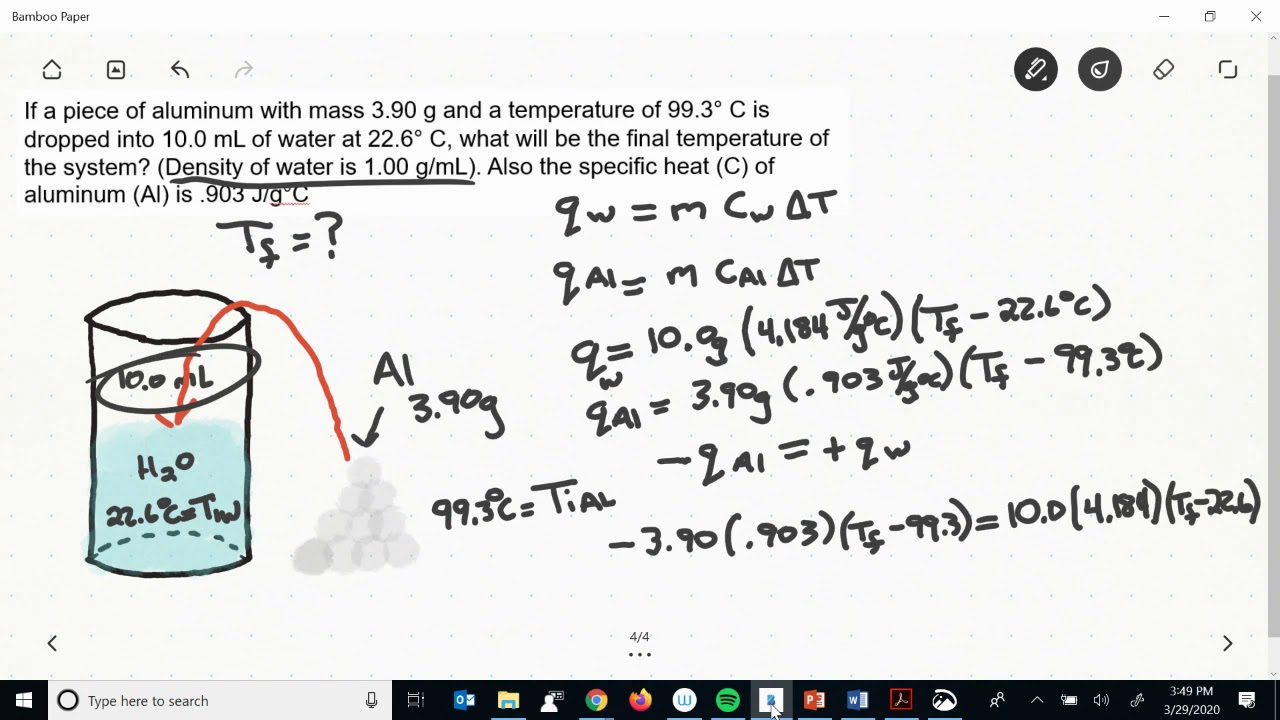 Bamboo Paper
If a piece of aluminum with mass 3.90 g and a temperature of 99.3° C is
dropped into 10.0 mL of water at 22.6° C, what will be the final temperature of
the system? (Density of water is 1.00 g/mL). Also the specific heat (C) of
aluminum (Al) is .903 J/g°C
Tf = ?
qw = m Cw ΔT
qAl = m CAl ΔT
qw = 10.0g (4.184 J/g°C)(Tf - 22.6°C)
qAl = 3.90g (.903 J/g°C)(Tf - 99.3°C)
-qAl = +qw
-3.90(.903)(Tf-99.3)=10.0(4.184)(Tf-22.6)
10.0 mL
H2O
22.6°C=Tiw
Al
3.90g
99.3°C=TiAL
4/4
Type here to search
3:49 PM
3/29/2020